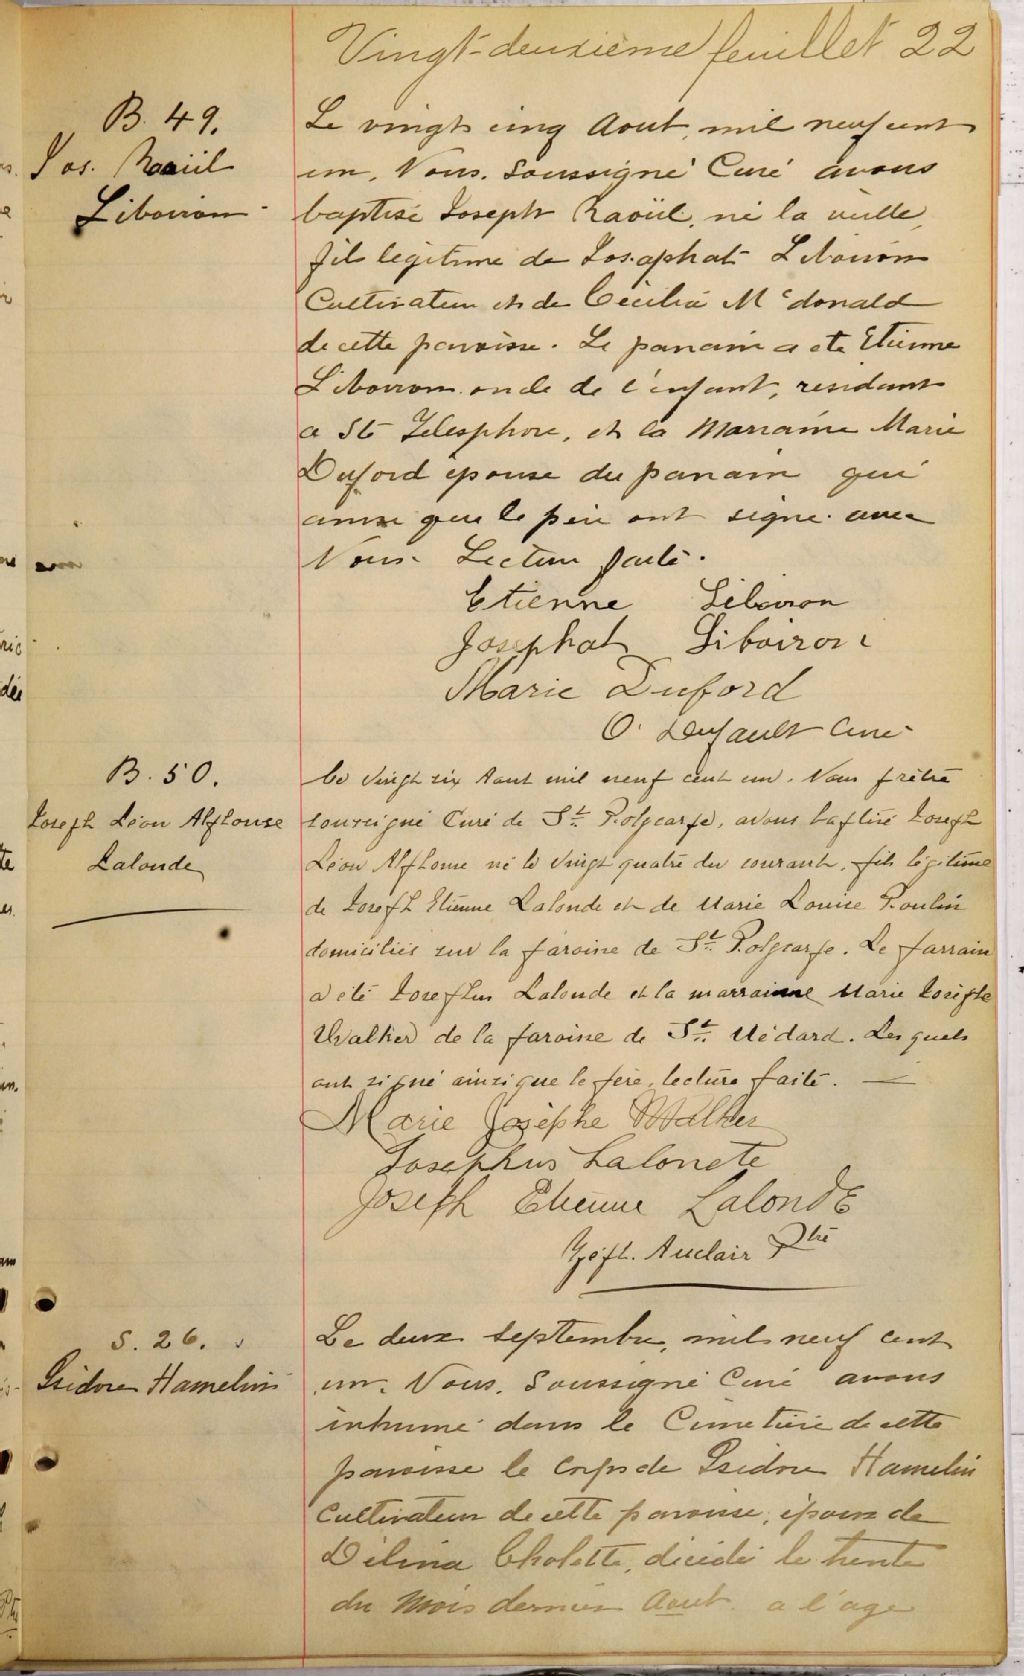 Vingt-deuxième feuillet 22
B. 49.
Jos. Raoül
Liboiron
Le vingt cinq Aout, mil neuf cent
un, Nous, soussigné Curé avons
baptisé Joseph Raoül, né la veille,
fils legitime de Josaphat Liboiron
Cultivateur et de Cécilia Mcdonald
de cette paroisse. Le parrain a ete Etienne
Liboiron oncle de l'enfant, residant
a St Telesphore, et la Marraine Marie
Duford épouse du parrain qui
ainsi que le père ont signé avec
Nous. Lecture faite.
Etienne Liboiron
Josephat Liboiron
Marie Duford
O. Dufault Curé
B. 50.
Joseph Léon Alphonse
Lalonde
Le vingt six Aout mil neuf cent un. Nous prêtre
soussigné Curé de St. Polycarpe, avons baptisé Joseph
Léon Alphonse né le vingt quatre du courant, fils légitime
de Joseph Etienne Lalonde et de Marie Louise Poulin
domiciliés sur la paroisse de St. Polycarpe. Le parrain
a été Josephus Lalonde et la marraine Marie Josèphe
Walker de la paroisse de St. Médard. Lesquels
ont signé ainsi que le père, lecture faite.
Marie Josèphe Walker
Josephus Lalonde
Joseph Etienne Lalonde
Auclair Ptre
S. 26.
Isidore Hamelin
Le deux septembre, mil neuf cent
un, Nous, soussigné Curé avons
inhumé dans le Cimetière de cette
paroisse le corps de Isidore Hamelin
Cultivateur de cette paroisse, époux de
Délina Cholette, décédé le trente
du mois dernier Aout a l'age